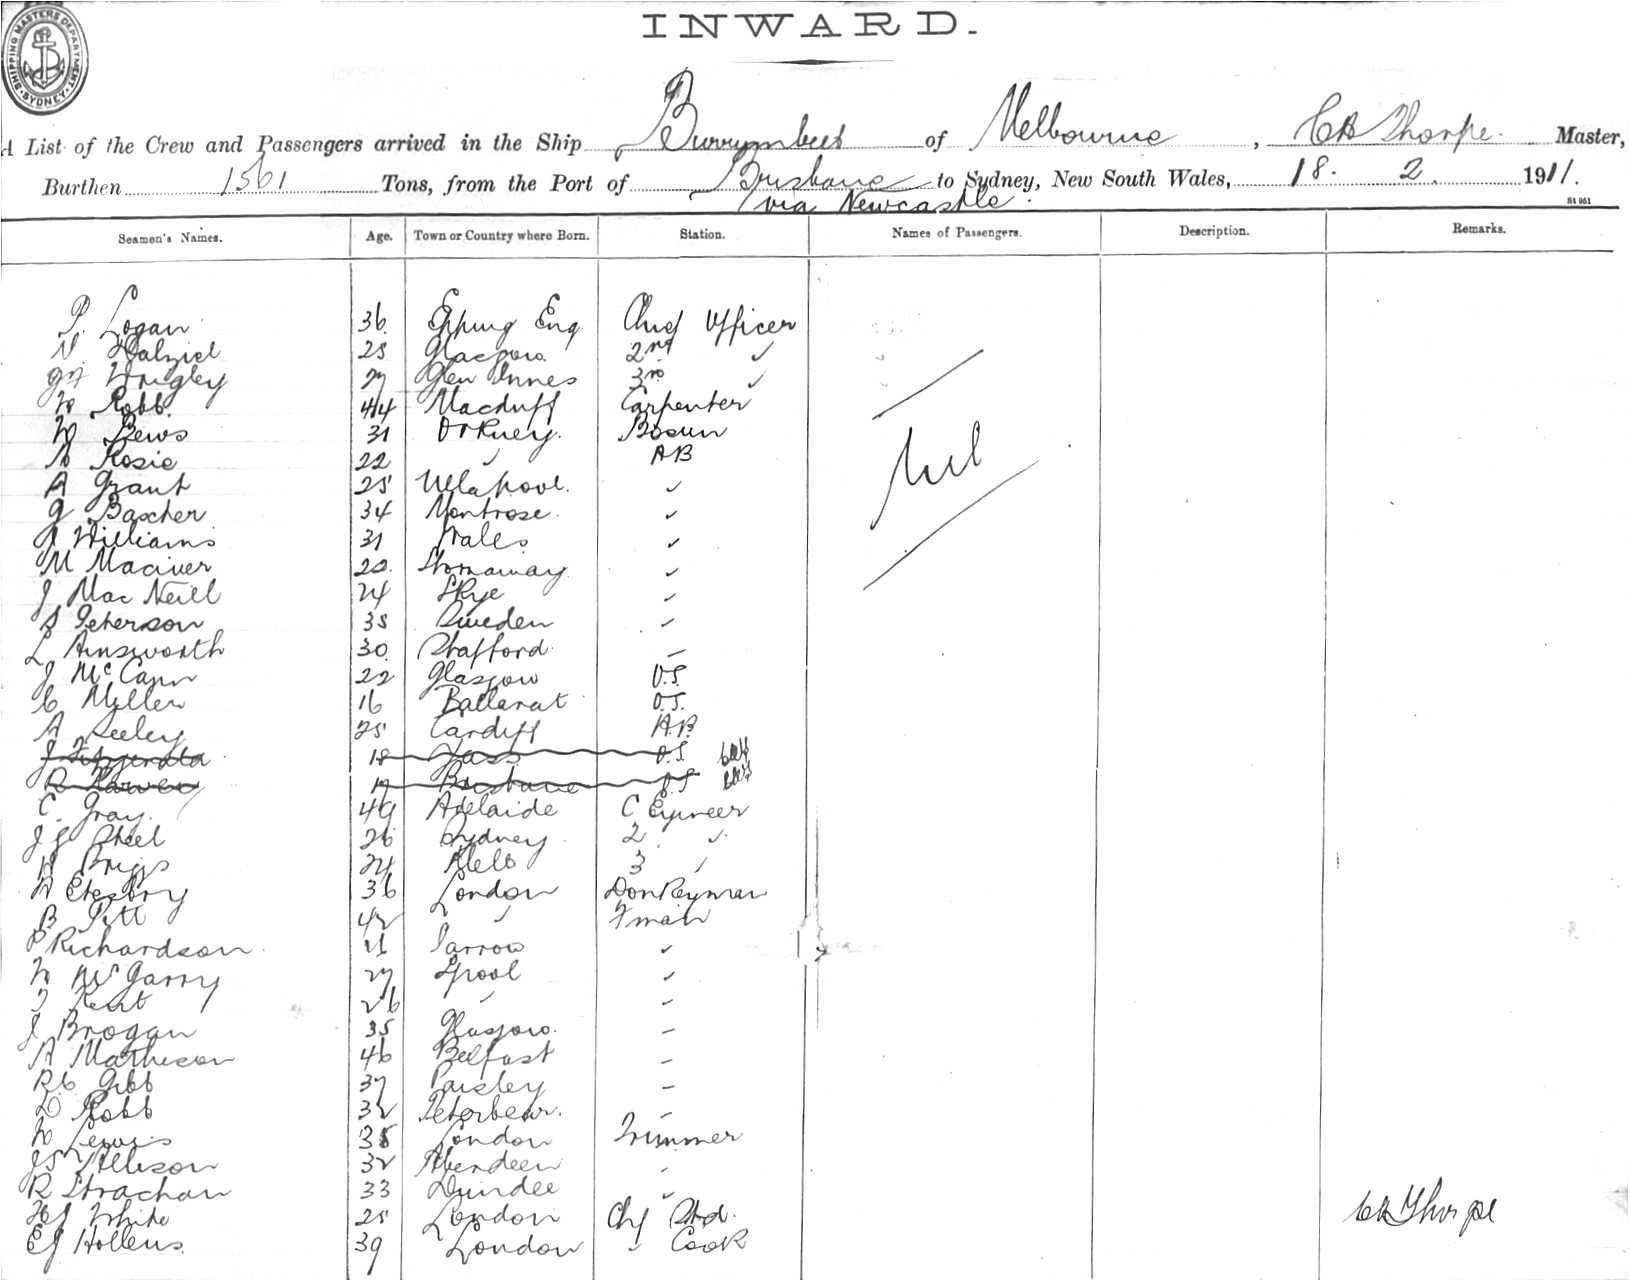 SHIPPING MASTERS DEPARTMENT. SYDNEY.
INWARD.
A List of the Crew and Passengers arrived in the Ship Burrumbeet of Melbourne, CA Thorpe. Master,
Burthen 1561 Tons, from the Port of Brisbane to Sydney, New South Wales, 18. 2. 1911.
via Newcastle.
Seamen's Names. Age. Town or Country where Born. Station. Names of Passengers. Description. Remarks.
P. Logan 36 Epping Eng Chief Officer
N. Dalziel 25 Glasgow 2nd ✓
Wrigley 27 Glen Innes 3rd ✓
W Robb. 44 Macduff Carpenter
W Bews 31 Orkney. Bosun
Rosie 22 ✓ AB
nil
A Grant 25 Ullapool. ✓
G Baxcher 34 Montrose. ✓
Williams 31 Wales ✓
M Maciver 20. Stornaway ✓
J Mac Neill 24 Skye ✓
Peterson 35 Sweden ✓
L Ainsworth 30. Stafford –
J McCann 22 Glasgow O.S.
C Myller 16 Ballarat O.S.
A Seeley 25 Cardiff A.B.
J Fitzgerald 18 Yass O.S
Harvey 19 Brisbane O.S
C. Gray. 49 Adelaide C Egineer
J J Steel 26 Sydney 2 ✓
Briggs 24 Melb 3 ✓
36 London Donkeyman
B Pitt 42 ✓ Fman
P Richardson 21 Jarrow ✓
W McGarry 27 Lpool ✓
Kent 26 ✓ ✓
J Brogan 35 Glasgow. –
A Matheson 46 Belfast –
R C Gibb 37 Paisley –
D Robb 32 –
W Lewis 35 London Trimmer
JS Allison 32 Aberdeen ✓
R Strachan 33 Dundee ✓
HJ White 25 London Chf Std. CA Thorpe
EJ Hollens. 39 London ✓ Cook